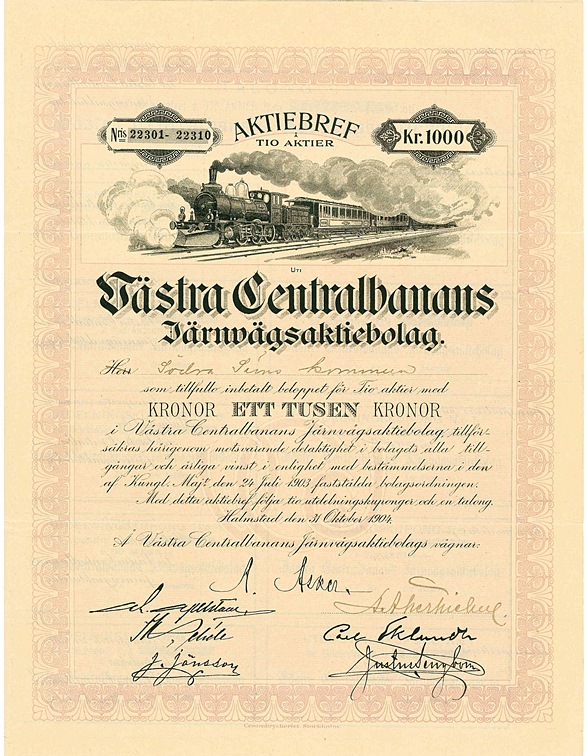 Nris 22301- 22310
AKTIEBREF
Å
TIO AKTIER
Kr. 1000
UTI
Västra Centralbanans
Järnvägsaktiebolag.
Herr Södra kommun
som tillfullo inbetalt beloppet för Tio aktier med
KRONOR ETT TUSEN KRONOR
i Västra Centralbanans Järnvägsaktiebolag, tillför-
säkras härigenom motsvarande delaktighet i bolagets alla till-
gångar och årliga vinst i enlighet med bestämmelserna i den
af Kungl. Maj:t den 24 Juli 1903 fastställda bolagsordningen.
Med detta aktiebref följa tio utdelningskuponger och en talong.
Halmstad den 31 Oktober 1904.
Å Västra Centralbanans Järnvägsaktiebolags vägnar:
A. Asker.
Carl Eklundh
J. Jönsson
Centraltryckeriet, Stockholm.